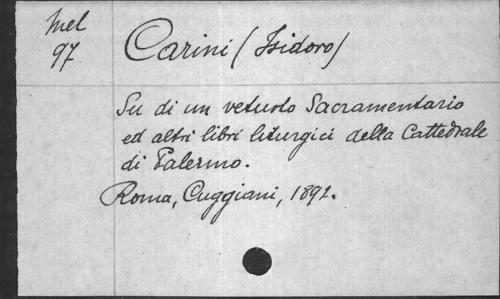 Mel
97
Carini (Isidoro)
Su di un vetusto Sacramentario
ed altri libri liturgici della Cattedrale
di Palermo.
Roma, Cuggiani, 1892.